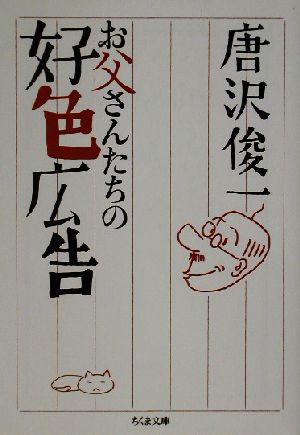 唐沢俊一
お父さんたちの
好色広告
ちくま文庫